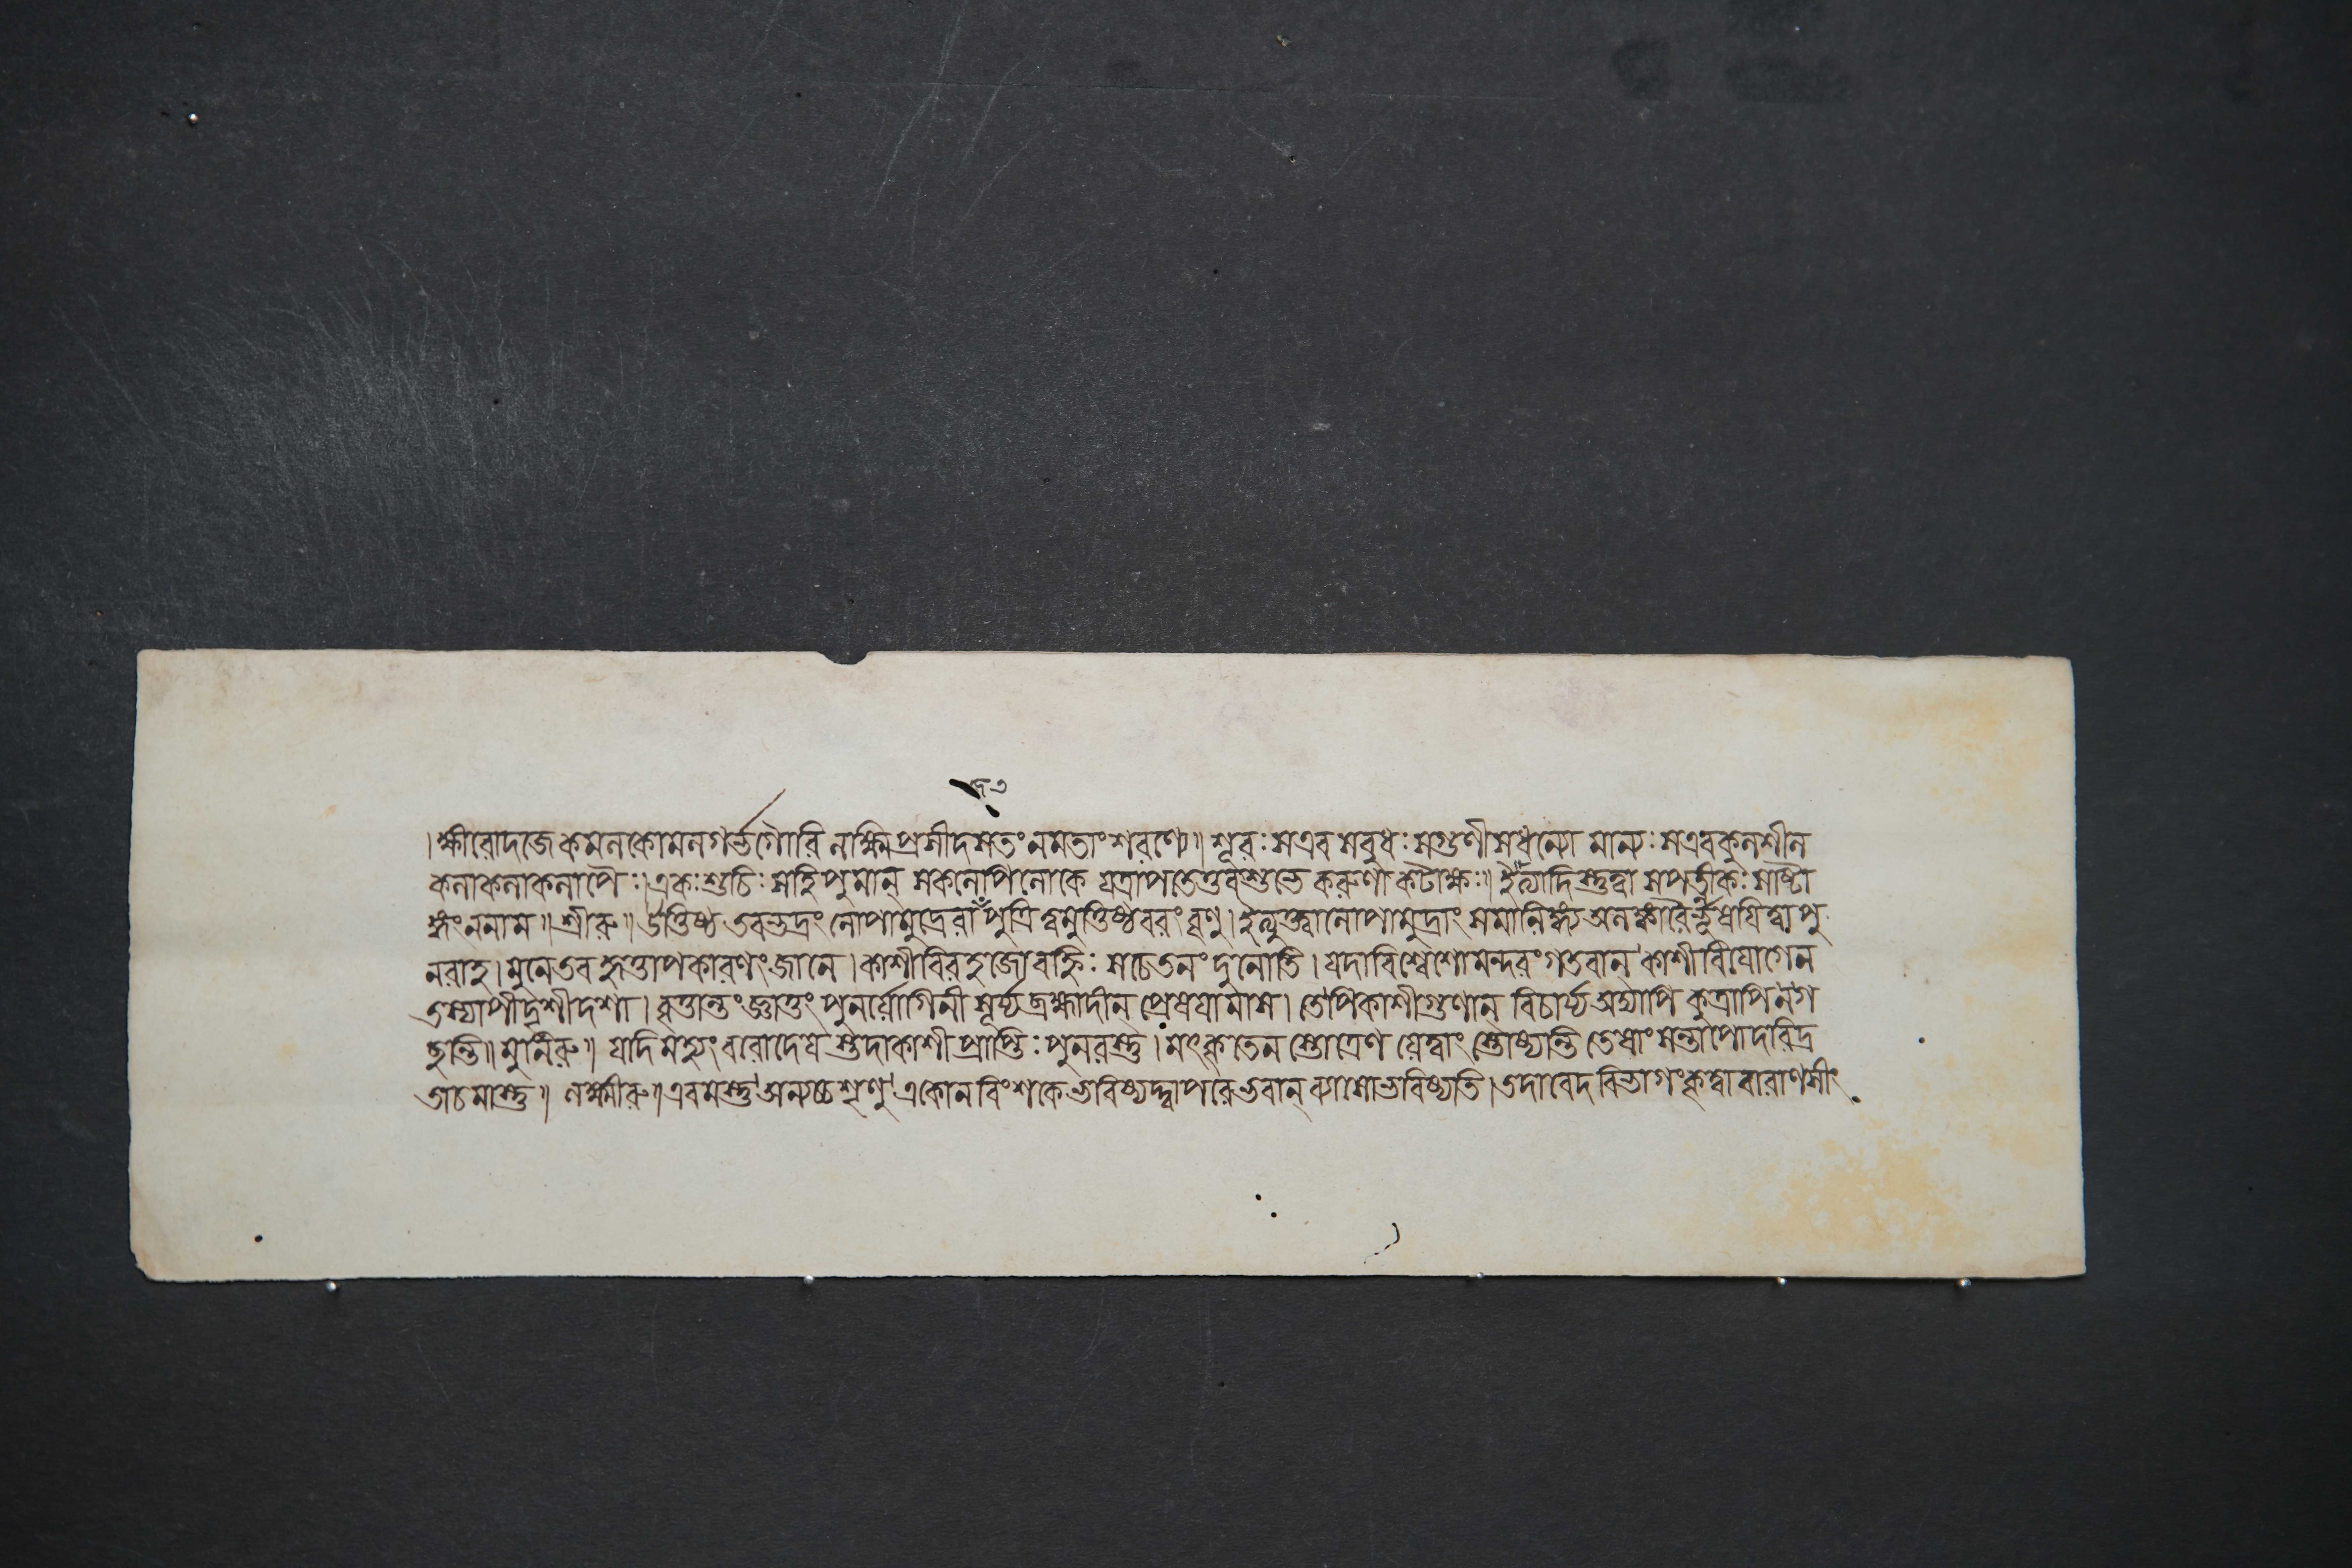 ।ক্ষীরোদজে কমলকোমলগর্ভগৌরি লক্ষ্মি প্রসীদসততং নমতাং শরণ্যে॥ শূরঃ সএব সবুধঃ সগুণী সধন্যো মান্যঃ সএবকুলশীল
কলাকলাকলাপৈঃ।একঃশুচিঃ সহি পুমান্ সকলোপিলোকে যত্রাপতেত্তবশুভে করুণাকটাক্ষঃ॥ ইত্যাদিস্তুত্বা সপত্নীকঃ সাষ্টা
ঙ্গং ননাম॥শ্রীরু॥উত্তিষ্ঠ তবভদ্রং লোপামুদ্রেরাঁ পুত্রি ত্বমুত্তিষ্ঠ বরং বৃণু।ইত্যুক্ত্বালোপামুদ্রাং সমালিঙ্গ্য অলঙ্কারৈর্ভূষয়িত্বা পু
নরাহ।মুনেতব হৃত্তাপকারণং জানে।কাশীবিরহজোবহ্নিঃ সচেতনং দুনোতি।যদাবিশ্বেশোমন্দরং গতবান্ কাশীবিয়োগেন
তস্যাপীদৃশীদশা।বৃত্তান্তং জ্ঞাতুং পুনর্যোগিনী সূর্য্য ব্রহ্মাদীন্ প্রেষয়ামাস।তেপিকাশীগুণান্ বিচার্য্য অদ্যাপি কুত্রাপি নগ
ছন্তি॥মুনিরু॥ যদি মহ্যং বরোদেয় স্তদাকাশীপ্রাপ্তিঃ পুনরস্তু।মৎকৃতেন স্তোত্রেণ যেত্বাং স্তোষ্যন্তি তেষাং সন্তাপোদরিদ্র
তাচমাস্তু॥ লক্ষ্মীরু॥এবমস্তু অন্যচ্চ শৃণু একোনবিংশকে ভবিষ্যদ্দ্বাপরেভবান্ ব্যাসোভবিষ্যতি।তদাবেদবিভাগং কৃত্বা বারাণসীং